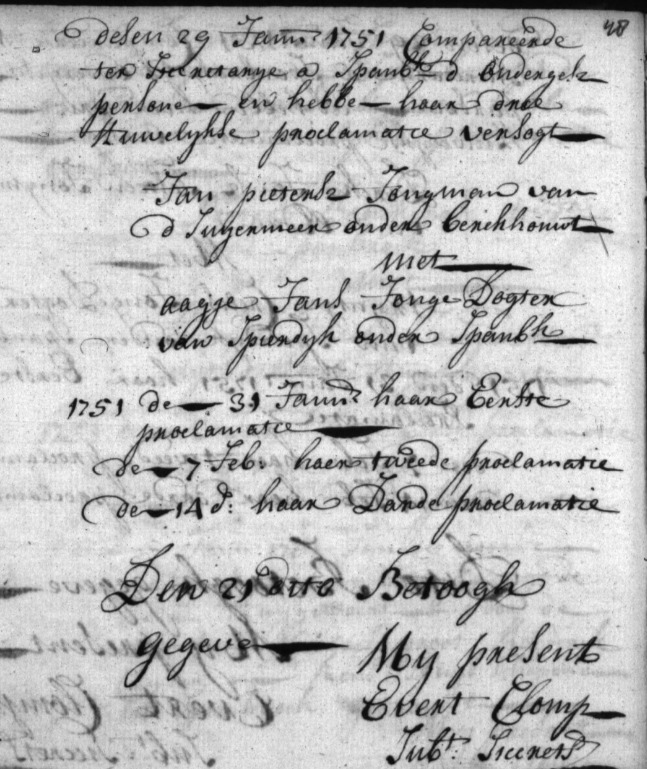 48
desen 29 Janu: 1751 Compareerde
ter Secretarye a Spanbr: d' Ondergesz
persone en hebbe haar drie
Huwelykse proclamatie versogt
Jan pietersz Jongman van
d' Suyermeer onder berckhout
Met
aagje Jans Jonge Dogter
van Spierdyk onder Spanbk
1751 de 31 Janu: haar Eerste
proclamatie
de 7 Feb: haer tweede proclamatie
de 14 d: haar Darde proclamatie
Den 21 dito Betoogh
gegeve
My present
Evert Clomp
Subt: Secrets